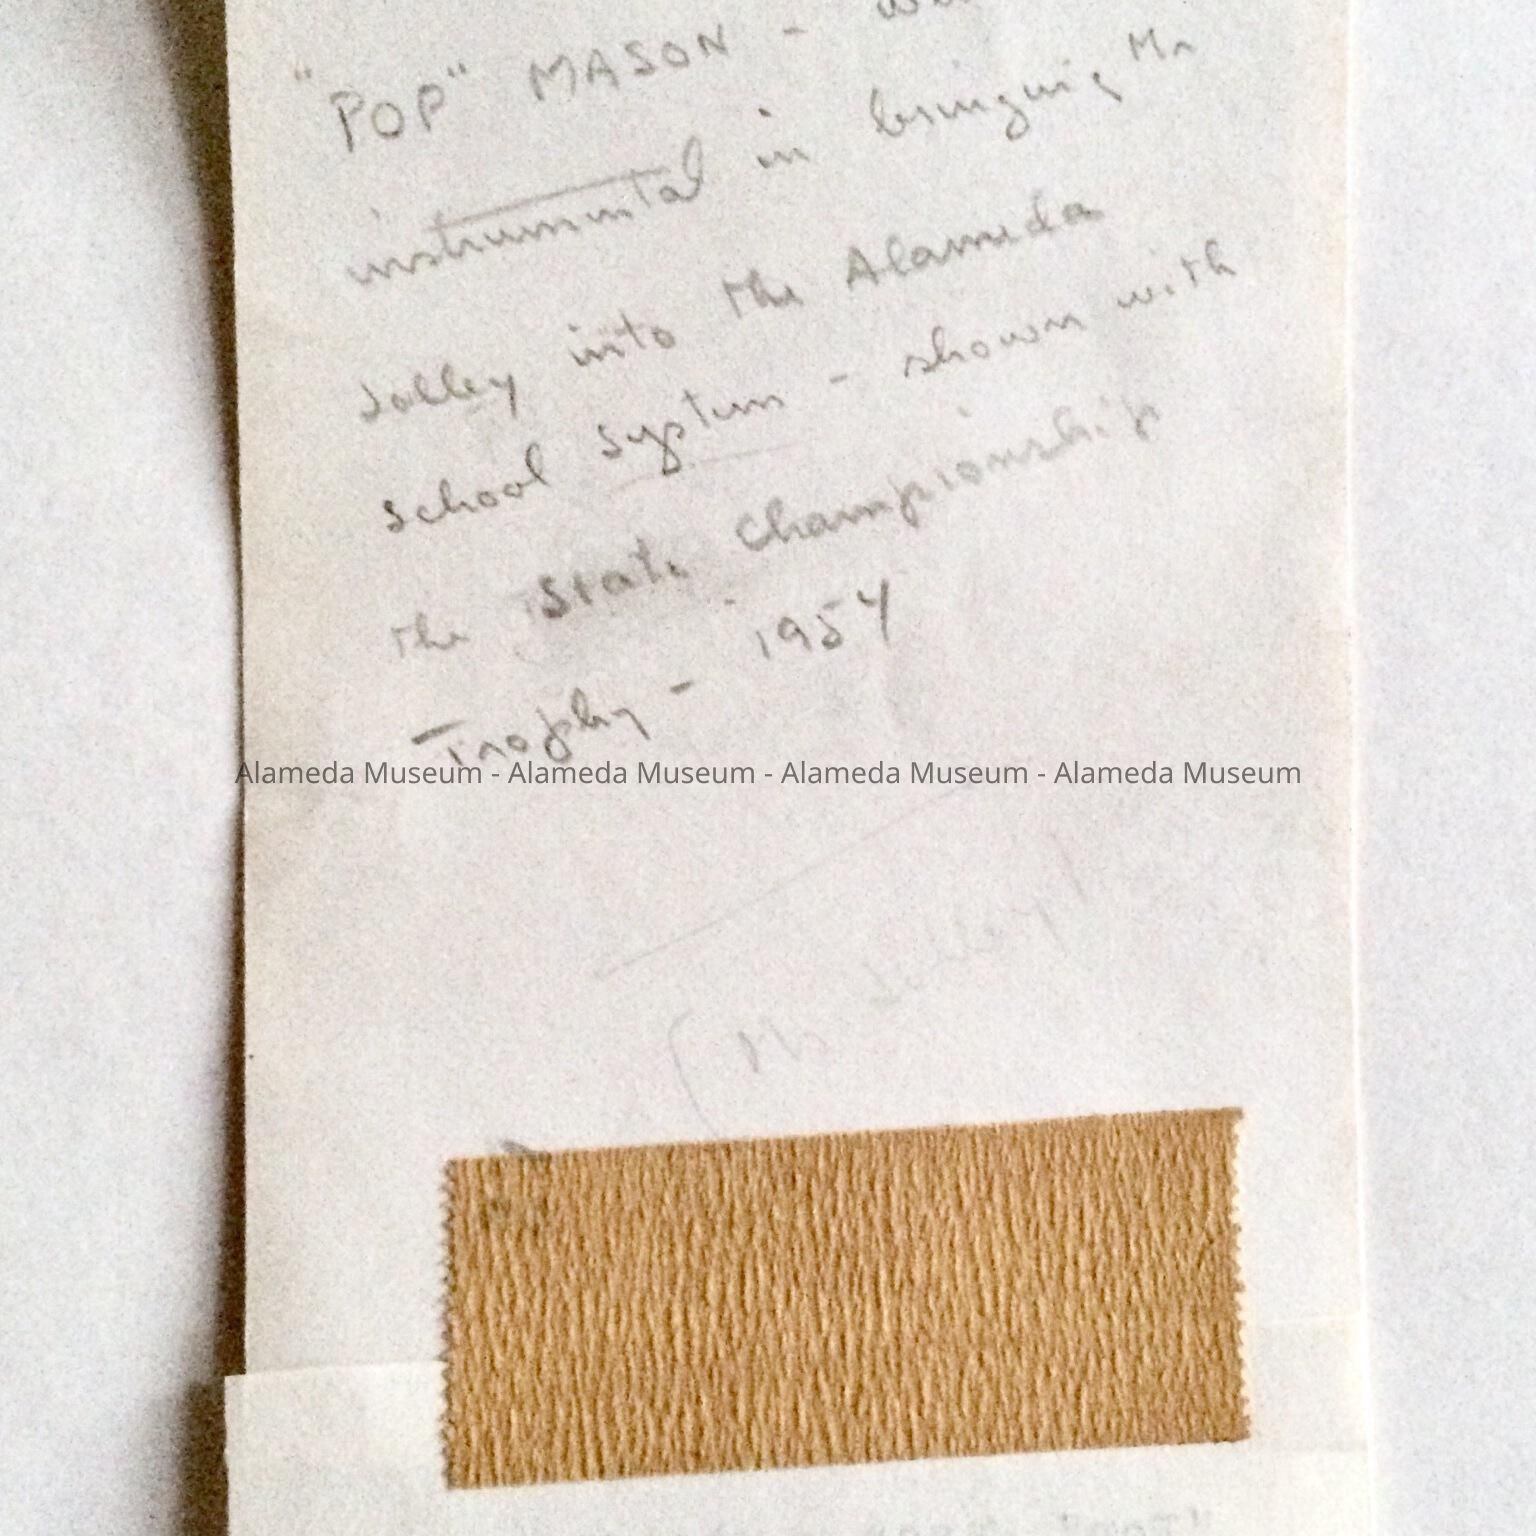 "POP" MASON -
instrumental in bringing Mr
Jolley into the Alameda
School System - shown with
the State Championship
Trophy - 1954
Alameda Museum - Alameda Museum - Alameda Museum - Alameda Museum
(Mr Jolley)